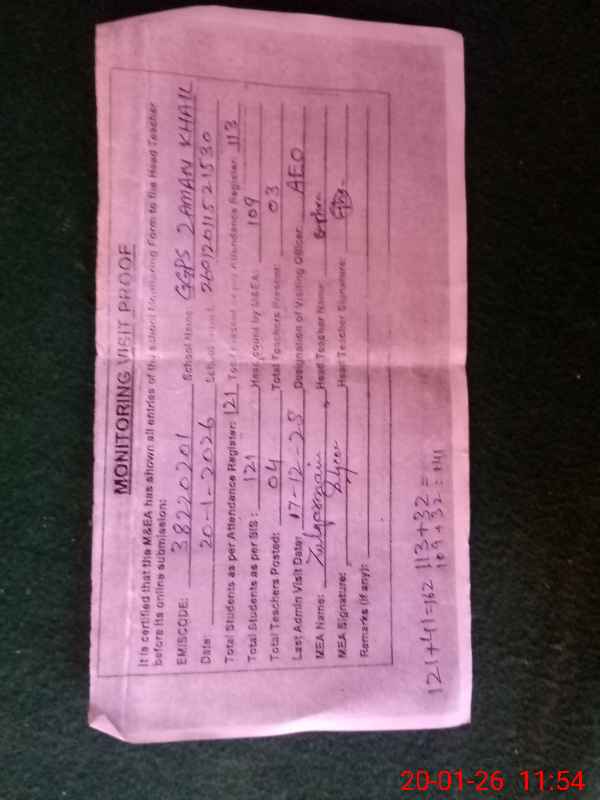 MONITORING VISIT PROOF
It is certified that the M&EA has shown all entries of the school Monitoring Form to the Head Teacher
before its online submission:
EMISCODE: 38220201 School Name: GGPS ZAMAN KHAIL
Date: 20-1-2026 26012011521530
Total Students as per Attendance Register: 121 Total Present as per Attendance Register: 113
Total Students as per SIS: 121 Headcount by M&EA: 109
Total Teachers Posted: 04 Total Teachers Present: 03
Last Admin Visit Date: 17-12-25 Designation of Visiting Officer: AEO
MEA Name: Head Teacher Name:
MEA Signature: Head Teacher Signature:
Remarks (if any):
121+41=162 113+32=
109+32=141
20-01-26 11:54